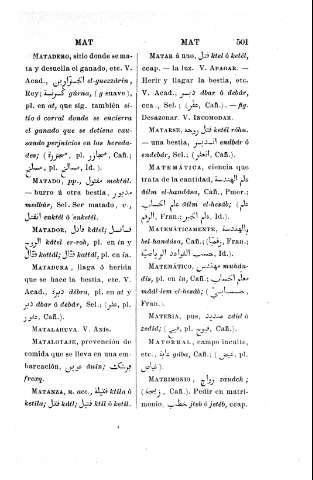 MAT
MAT
501
MATADERO, sitio donde se ma-
ta y desuella el ganado, etc. V.
Acad., الجزارين el-guezzárin,
Rey; گرنة gúrna, (g suave),
pl. en at, que sig. también si-
tio ó corral donde se encierra
el ganado que se detiene cau-
sando perjuicios en las hereda-
des; (مجزرة, pl. مجازر, Cañ.;
pl. مسالخ, Id.).
MATADO, pp., مقتول maktúl.
— burro á otra bestia,
meslbúr, Sel. Ser matado, v.,
انقتل enktél ó 'enketél.
MATADOR, قاتل kátel; قاتل
الروح kátel er-roh, pl. en ín y
قتال kattál; قتال kattál, pl. en ín.
MATADURA, llaga ó herida
que se hace la bestia, etc. V.
Acad., دبرة débra, pl. en at y
دبر dbar ó debár, Sel.; (pl.
Cañ.).
MATALAHUVA. V. ANIS.
MATALOTAJE, prevención de
comida que se lleva en una em-
barcación, عوين auín;
frazq.
MATANZA, n. acc., قتيلة ktíla ó
ketíla; قتل ktál; قتيل ktíl ó ketíl.
MATAR á uno, قتل ktel ó ketél,
ccap. — la luz. V. APAGAR. —
Herir y llagar la bestia, etc.
V. Acad., دبر dbar ó debár,
cca., Sel.; (عقر, Cañ.). — fig.
Desazonar. V. INCOMODAR.
MATARSE, قتل روحه ketél róhu.
— una bestia, اندبر endbér ó
endebér, Sel.; (انعقر, Cañ.).
MATEMÁTICA, ciencia que
trata de la cantidad, علم الهندسة
âilm el-handása, Cañ., Pmer.;
علم الحساب âilm el-hesáb; (علم
الرقم, Fran.; علم الجبر, Id.).
MATEMÁTICAMENTE, بالهندسة
bel-handása, Cañ.; (رقميًا, Fran.;
حسب القواعد الرياضية, Id.).
MATEMÁTICO, مهندس muhán-
dis, pl. en ín, Cañ.; معلم الحساب
mâál-lem el-hesáb; (حسابي,
Fran.).
MATERIA, pus, صديد zdíd ó
zedíd; (قيح, pl. قيوح, Cañ.).
MATORRAL, campo inculto,
etc., غابة gába, Cañ.; (غيض, pl.
غياض).
MATRIMONIO, زواج zauách;
(زيجة, Cañ.). Pedir en matri-
monio, خطب jteb ó jetéb, ccap.